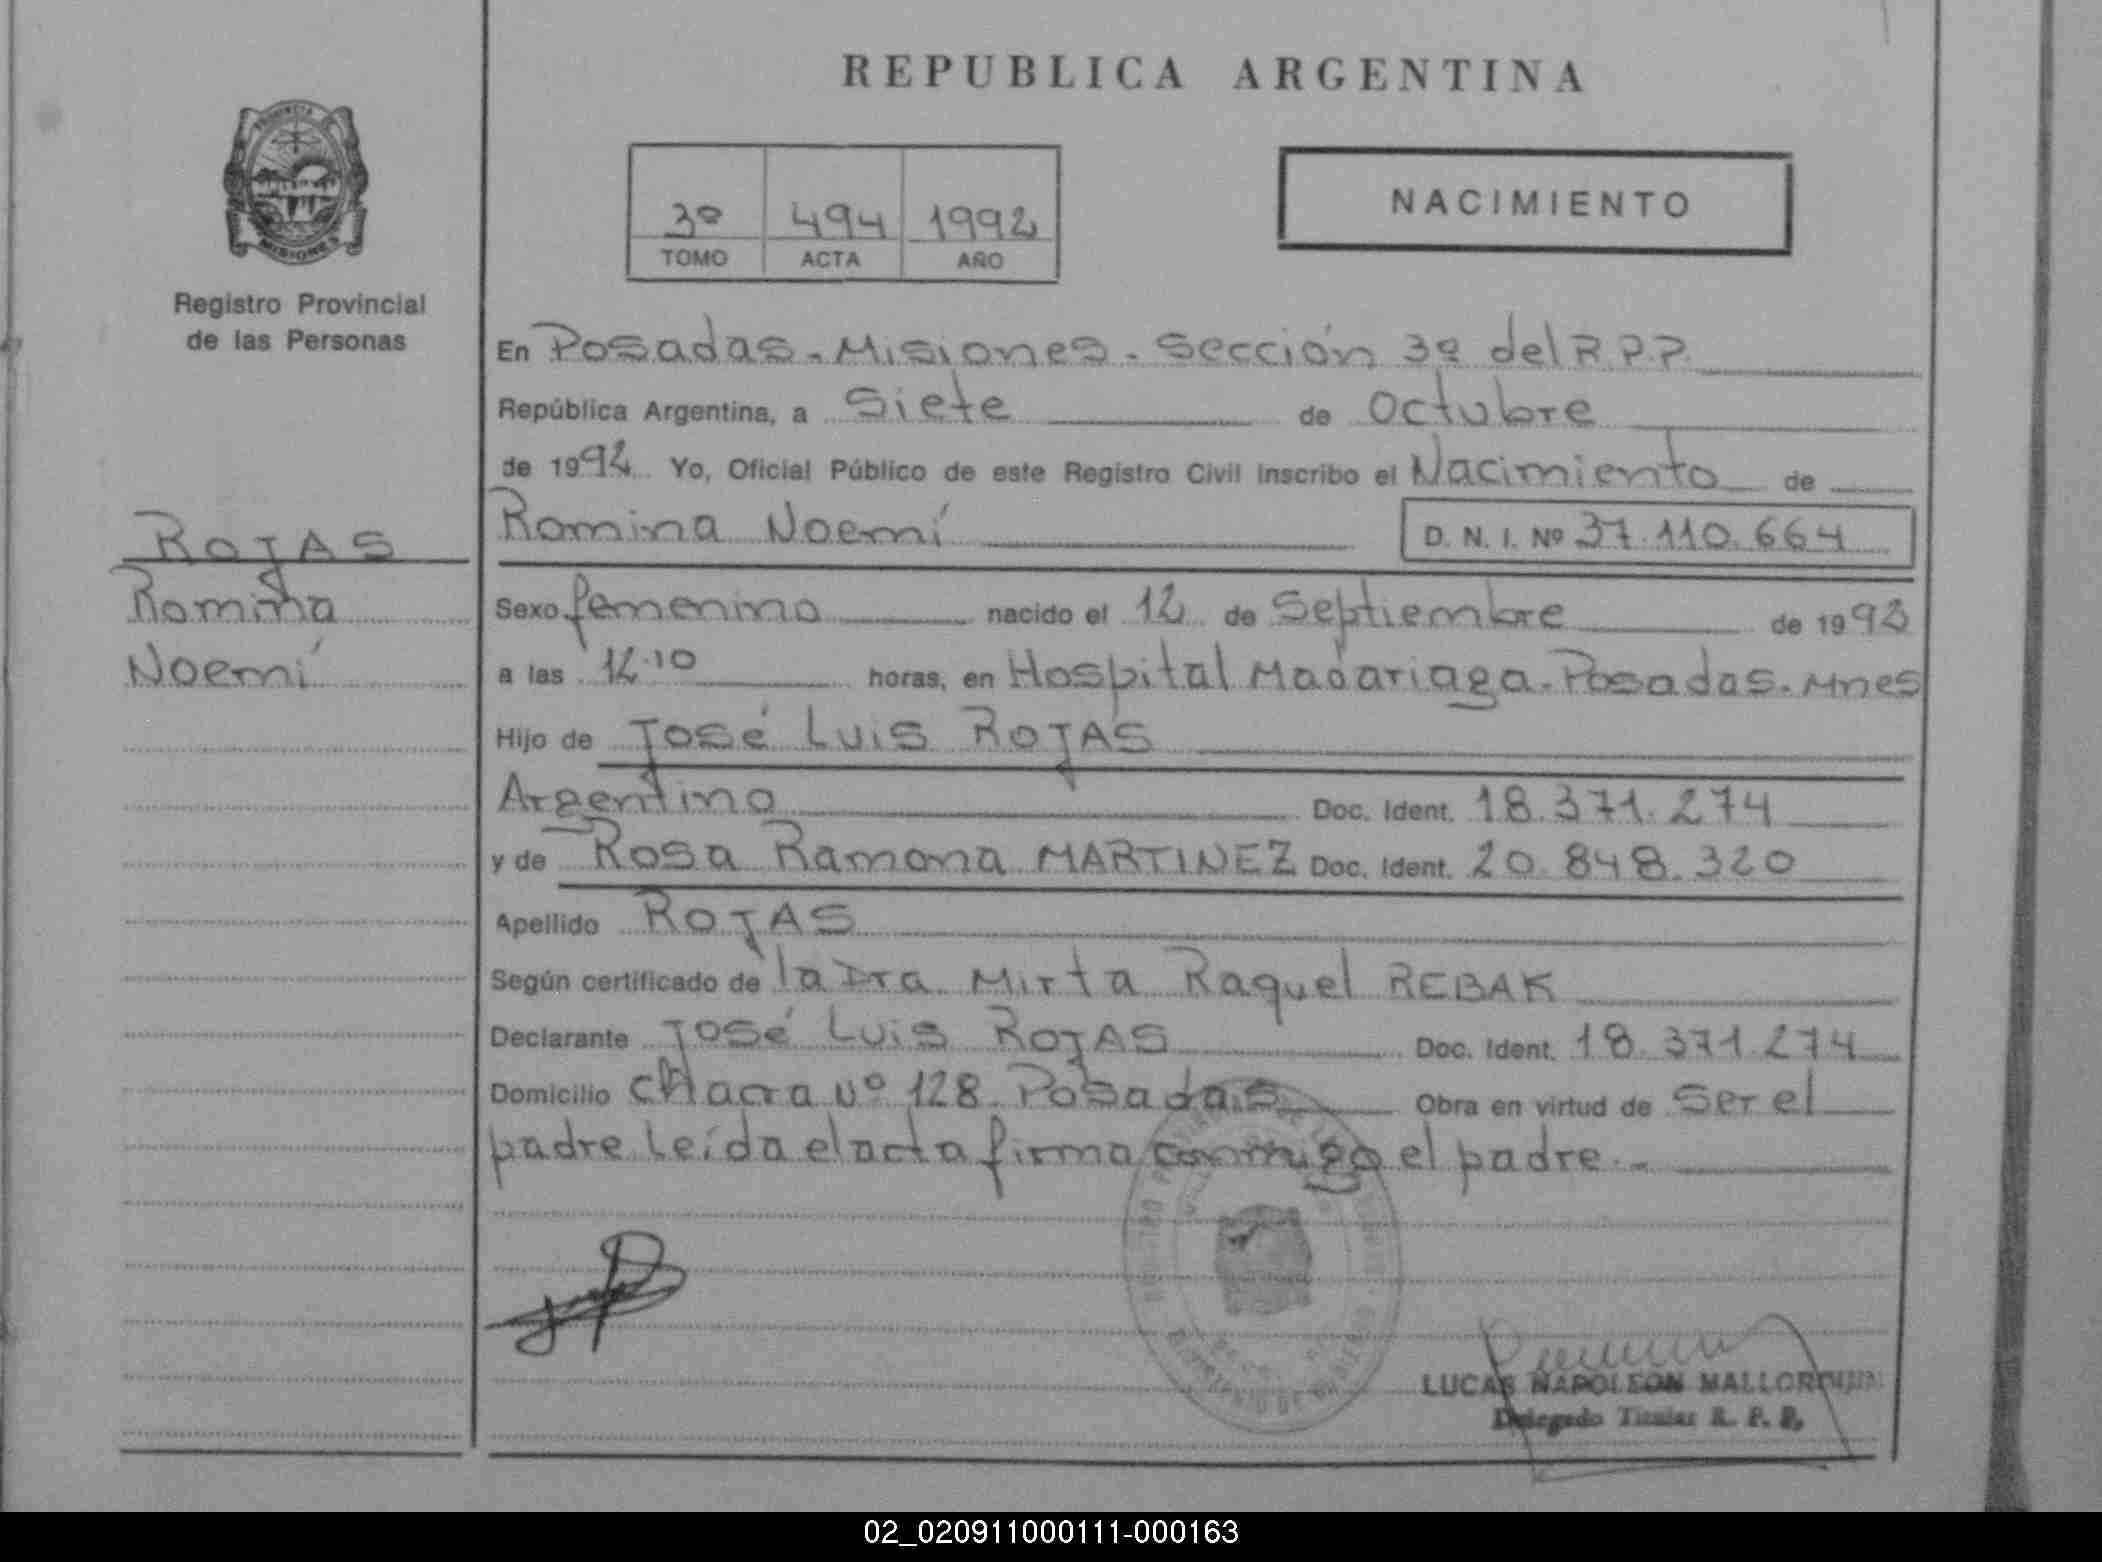 REPUBLICA ARGENTINA
PROVINCIA DE
MISIONES
Registro Provincial
de las Personas
3º 494 1992
TOMO ACTA AÑO
NACIMIENTO
En Posadas-Misiones-Sección 3º del R.P.P.
República Argentina, a Siete de Octubre
de 1992 Yo, Oficial Público de este Registro Civil inscribo el Nacimiento de
Romina Noemí D. N. I. Nº 37.110.664
ROJAS
Romina
Noemí
Sexo femenino nacido el 12 de Septiembre de 1992
a las 12.10 horas, en Hospital Madariaga-Posadas-Mnes
Hijo de José Luis ROJAS
Argentino Doc. Ident. 18.371.274
y de Rosa Ramona MARTINEZ Doc. Ident. 20.848.320
Apellido ROJAS
Según certificado de la Dra Mirta Raquel REBAK
Declarante José Luis ROJAS Doc. Ident. 18.371.274
Domicilio CHacra Nº 128 Posadas Obra en virtud de Ser el
padre Leída el acta firma conmigo el padre.-
LUCAS NAPOLEON
Delegado Titular R. P. P.
02_020911000111-000163